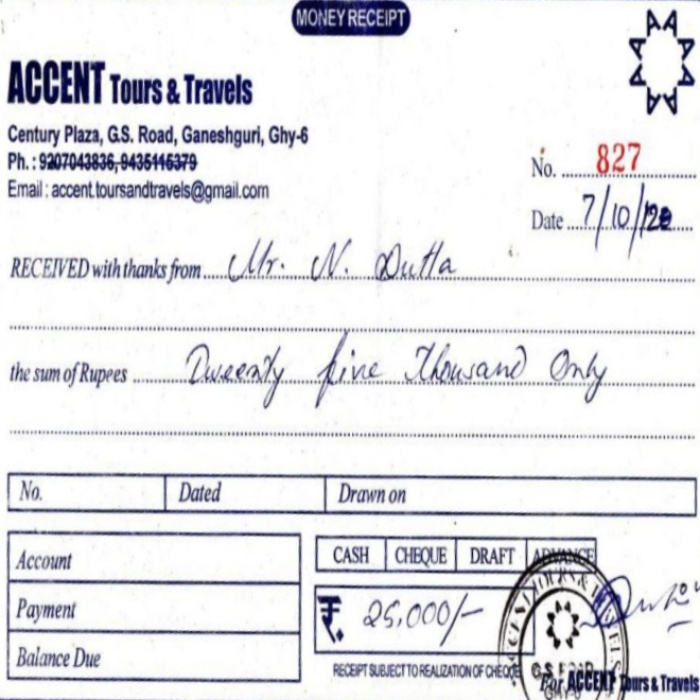 MONEY RECEIPT
ACCENT Tours & Travels
Century Plaza, G.S. Road, Ganeshguri, Ghy-6
Ph. : 9207043836, 9435115379
Email : accent.toursandtravels@gmail.com
No. 827
Date 7/10/
RECEIVED with thanks from Mr. N. Dutta
the sum of Rupees Tweenty five Thousand Only
No. Dated Drawn on
Account
Payment
Balance Due
CASH CHEQUE DRAFT ADVANCE
₹. 25,000/-
RECEIPT SUBJECT TO REALIZATION OF CHEQUE
For ACCENT Tours & Travels